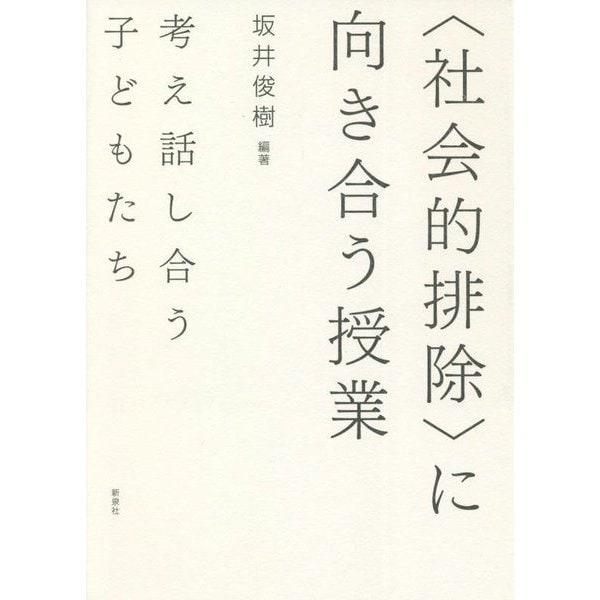 〈社会的排除〉に
向き合う授業
坂井俊樹 編著
考え話し合う
子どもたち
新泉社